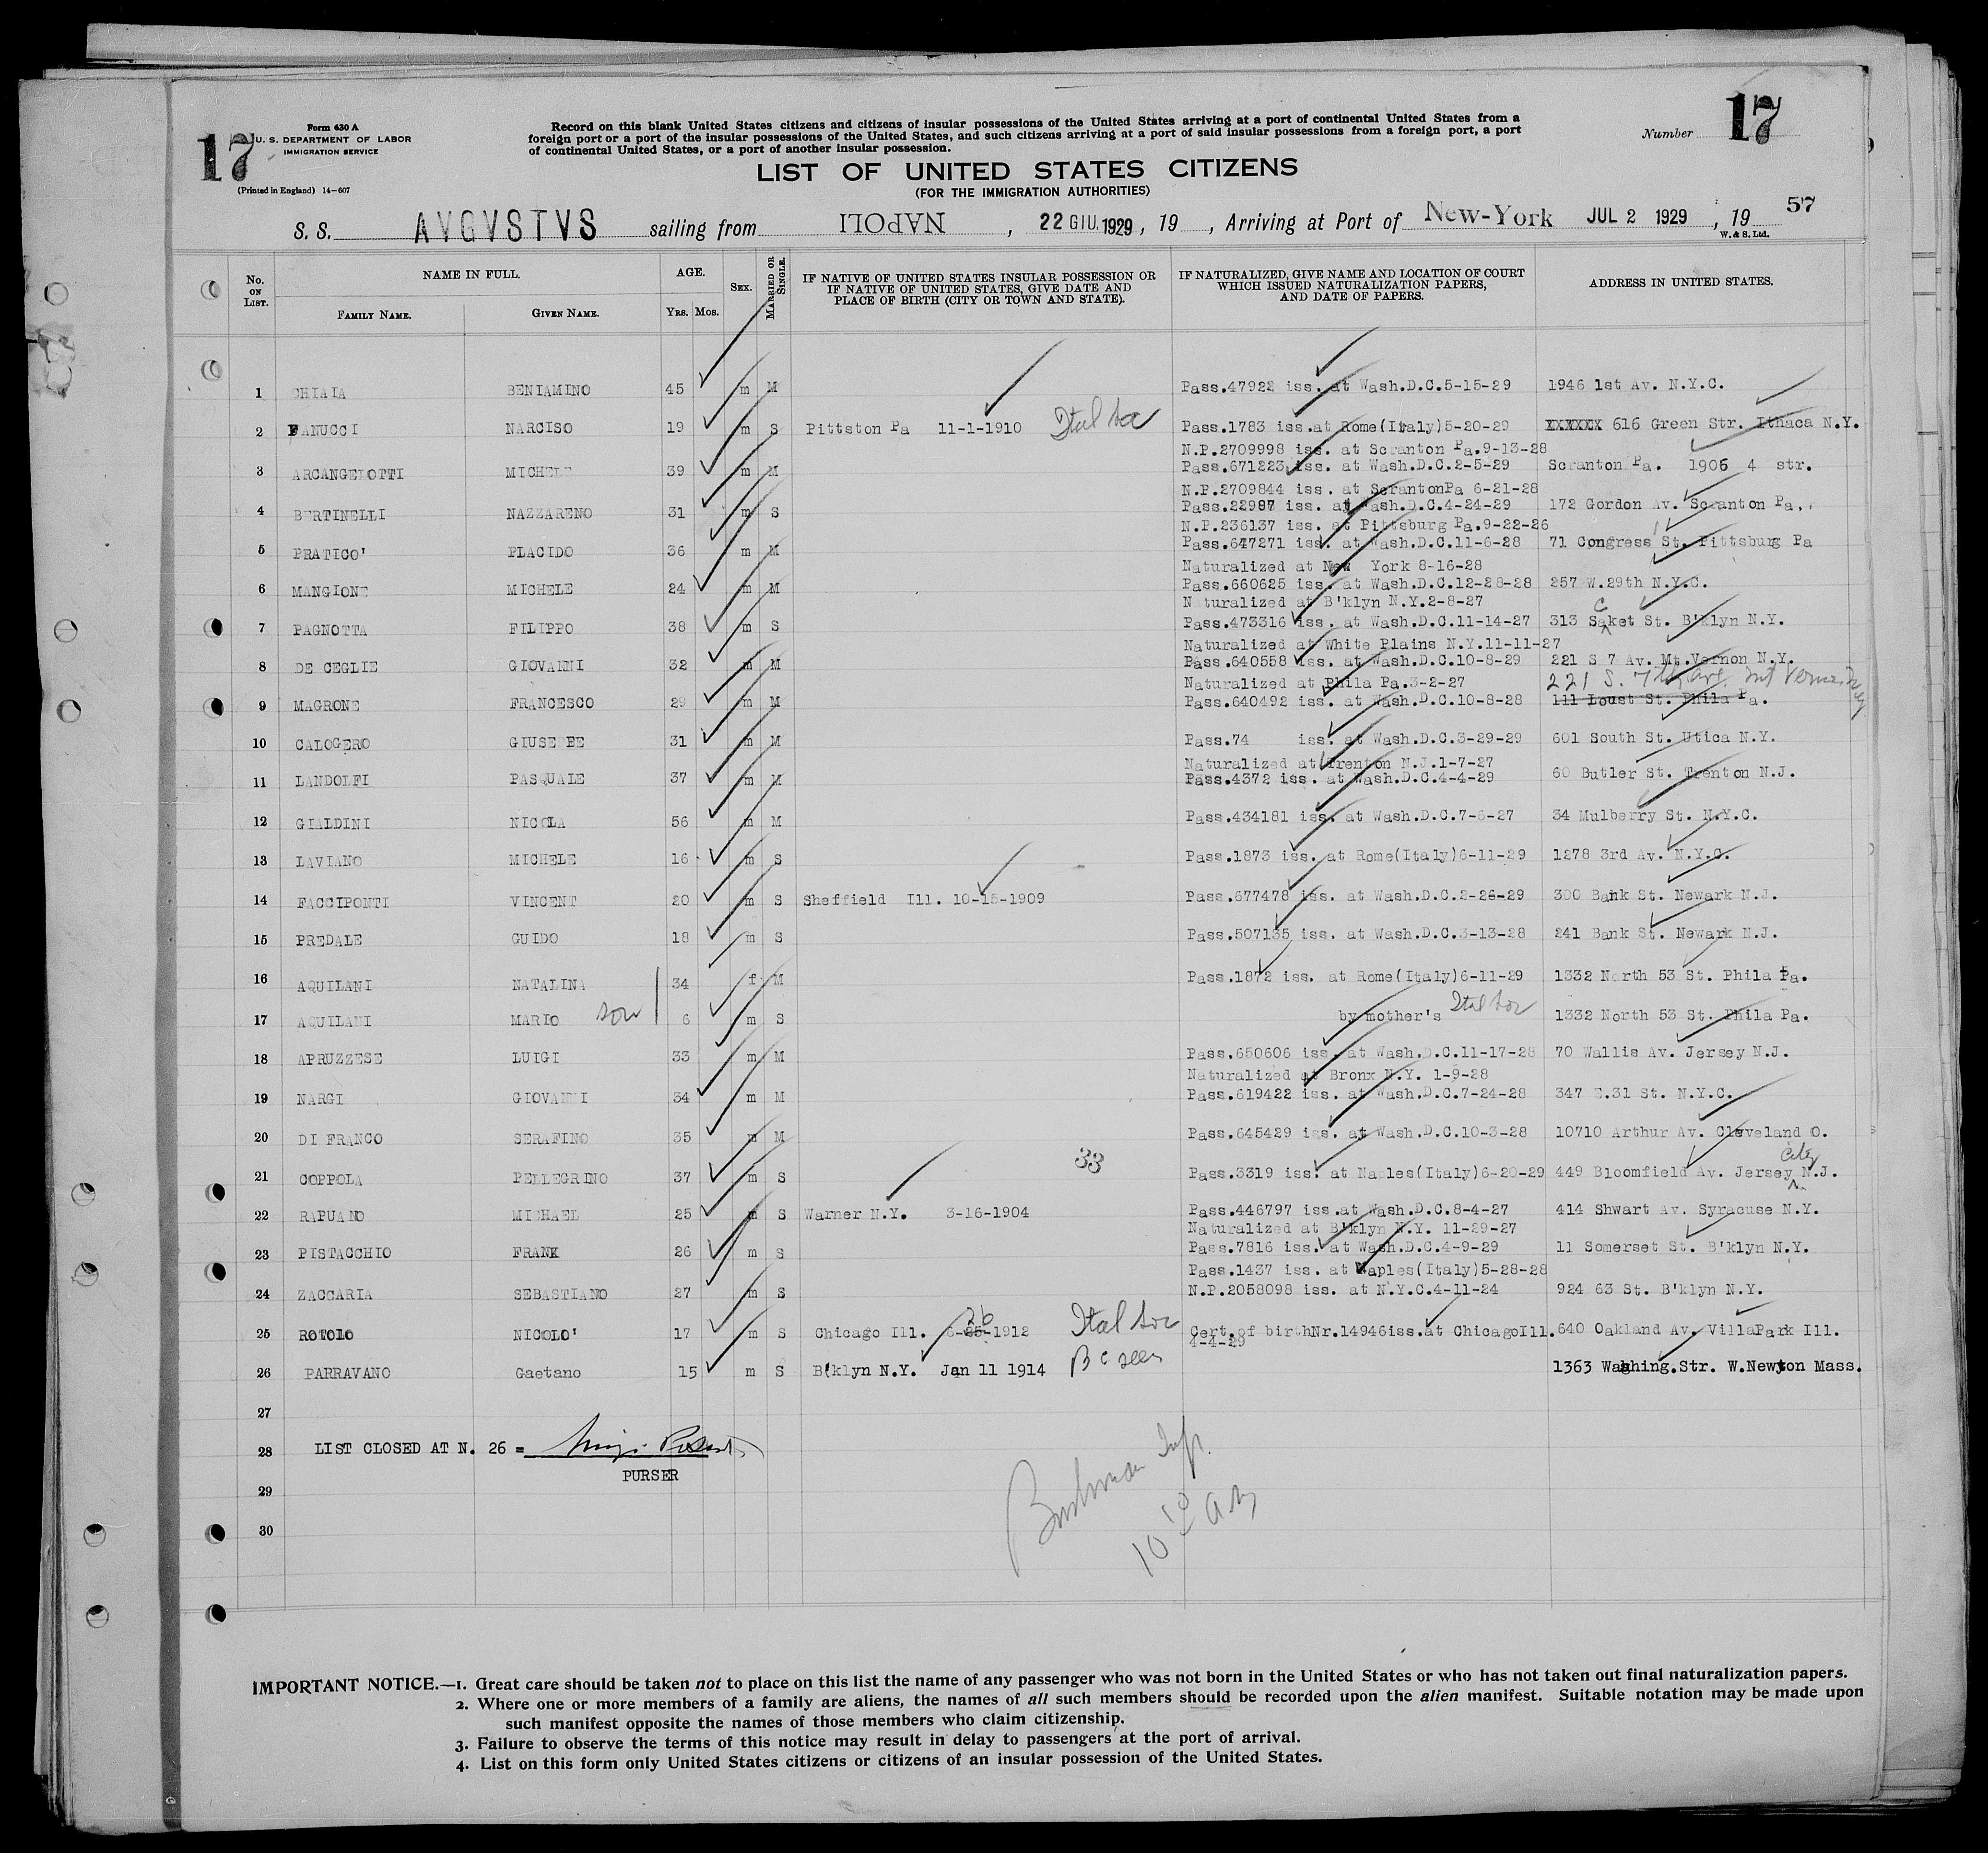 17
Form 630 A
U. S. DEPARTMENT OF LABOR
IMMIGRATION SERVICE
(Printed in England) 14-607
Record on this blank United States citizens and citizens of insular possessions of the United States arriving at a port of continental United States from a
foreign port or a port of the insular possessions of the United States, and such citizens arriving at a port of said insular possessions from a foreign port, a port
of continental United States, or a port of another insular possession.
Number 17
LIST OF UNITED STATES CITIZENS
(FOR THE IMMIGRATION AUTHORITIES)
S. S. AVGVSTVS sailing from NAPOLI, 22 GIU. 1929, 19 , Arriving at Port of New-York JUL 2 1929, 19 57
W. & S. Ltd.
No. ON LIST. NAME IN FULL. AGE. SEX. MARRIED OR SINGLE. IF NATIVE OF UNITED STATES INSULAR POSSESSION OR IF NATIVE OF UNITED STATES, GIVE DATE AND PLACE OF BIRTH (CITY OR TOWN AND STATE). IF NATURALIZED, GIVE NAME AND LOCATION OF COURT WHICH ISSUED NATURALIZATION PAPERS, AND DATE OF PAPERS. ADDRESS IN UNITED STATES.
FAMILY NAME. GIVEN NAME. YRS. MOS.
1 CHIAIA BENIAMINO 45 m M Pass.47922 iss. at Wash.D.C.5-15-29 1946 1st Av. N.Y.C.
2 FANUCCI NARCISO 19 m S Pittston Pa 11-1-1910 Pass.1783 iss.at Rome(Italy)5-20-29 XXXXXX 616 Green Str. Ithaca N.Y.
N.P.2709998 iss. at Scranton Pa.9-13-28
3 ARCANGELOTTI MICHELE 39 m M Pass.671223 iss. at Wash.D.C.2-5-29 Scranton Pa. 1906 4 str.
N.P.2709844 iss. at ScrantonPa 6-21-28
4 BERTINELLI NAZZARENO 31 m S Pass.22987 iss. at Wash.D.C.4-24-29 172 Gordon Av. Scranton Pa.
N.P.236137 iss. at Pittsburg Pa.9-22-26
5 PRATICO' PLACIDO 36 m M Pass.647271 iss. at Wash.D.C.11-6-28 71 Congress St. Pittsburg Pa
Naturalized at New York 8-16-28
6 MANGIONE MICHELE 24 m M Pass.660625 iss. at Wash.D.C.12-28-28 257 W.29th N.Y.C.
Naturalized at B'klyn N.Y.2-8-27
7 PAGNOTTA FILIPPO 38 m S Pass.473316 iss. at Wash.D.C.11-14-27 313 Sacket St. B'klyn N.Y.
Naturalized at White Plains N.Y.11-11-27
8 DE CEGLIE GIOVANNI 32 m M Pass.640558 iss. at Wash.D.C.10-8-29 221 S 7 Av. Mt.Vernon N.Y.
Naturalized at Phila Pa.3-2-27 221 S. 7th Ave. Mt Vernon N.Y.
9 MAGRONE FRANCESCO 29 m M Pass.640492 iss. at Wash.D.C.10-8-28 111 Loust St. Phila Pa.
10 CALOGERO GIUSEPPE 31 m M Pass.74 iss. at Wash.D.C.3-29-29 601 South St. Utica N.Y.
Naturalized at Trenton N.J.1-7-27
11 LANDOLFI PASQUALE 37 m M Pass.4372 iss. at Wash.D.C.4-4-29 60 Butler St. Trenton N.J.
12 GIALDINI NICOLA 56 m M Pass.434181 iss. at Wash.D.C.7-6-27 34 Mulberry St. N.Y.C.
13 LAVIANO MICHELE 16 m S Pass.1873 iss. at Rome(Italy)6-11-29 1278 3rd Av. N.Y.C.
14 FACCIPONTI VINCENT 20 m S Sheffield Ill. 10-15-1909 Pass.677478 iss. at Wash.D.C.2-26-29 300 Bank St. Newark N.J.
15 PREDALE GUIDO 18 m S Pass.507135 iss. at Wash.D.C.3-13-28 241 Bank St. Newark N.J.
16 AQUILANI NATALINA 34 f M Pass.1872 iss. at Rome(Italy)6-11-29 1332 North 53 St. Phila Pa.
17 AQUILANI MARIO son 6 m S by mother's 1332 North 53 St. Phila Pa.
18 APRUZZESE LUIGI 33 m M Pass.650606 iss. at Wash.D.C.11-17-28 70 Wallis Av. Jersey N.J.
Naturalized at Bronx N.Y. 1-9-28
19 NARGI GIOVANNI 34 m M Pass.619422 iss. at Wash.D.C.7-24-28 347 E.31 St. N.Y.C.
20 DI FRANCO SERAFINO 35 m M Pass.645429 iss. at Wash.D.C.10-3-28 10710 Arthur Av. Cleveland O.
33
21 COPPOLA PELLEGRINO 37 m S Pass.3319 iss. at Naples(Italy)6-20-29 449 Bloomfield Av. Jersey City N.J.
22 RAPUANO MICHAEL 25 m S Warner N.Y. 3-16-1904 Pass.446797 iss.at Wash.D.C.8-4-27 414 Shwart Av. Syracuse N.Y.
Naturalized at B'klyn N.Y. 11-29-27
23 PISTACCHIO FRANK 26 m S Pass.7816 iss. at Wash.D.C.4-9-29 11 Somerset St. B'klyn N.Y.
Pass.1437 iss. at Naples(Italy)5-28-28
24 ZACCARIA SEBASTIANO 27 m S N.P.2058098 iss. at N.Y.C.4-11-24 924 63 St. B'klyn N.Y.
26
25 ROTOLO NICOLO' 17 m S Chicago Ill. 6-25-1912 Cert.of birthNr.14946iss.at ChicagoIll. 640 Oakland Av. VillaPark Ill.
4-4-29
26 PARRAVANO Gaetano 15 m S B'klyn N.Y. Jan 11 1914 B C seen 1363 Washing.Str. W.Newton Mass.
27
28 LIST CLOSED AT N. 26 =
PURSER
29
30
IMPORTANT NOTICE.—1. Great care should be taken not to place on this list the name of any passenger who was not born in the United States or who has not taken out final naturalization papers.
2. Where one or more members of a family are aliens, the names of all such members should be recorded upon the alien manifest. Suitable notation may be made upon
such manifest opposite the names of those members who claim citizenship.
3. Failure to observe the terms of this notice may result in delay to passengers at the port of arrival.
4. List on this form only United States citizens or citizens of an insular possession of the United States.